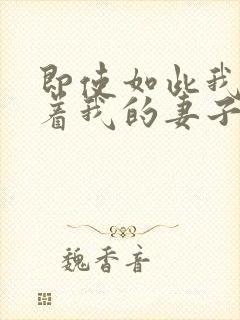 即使如此我
着我的妻子
魏香音